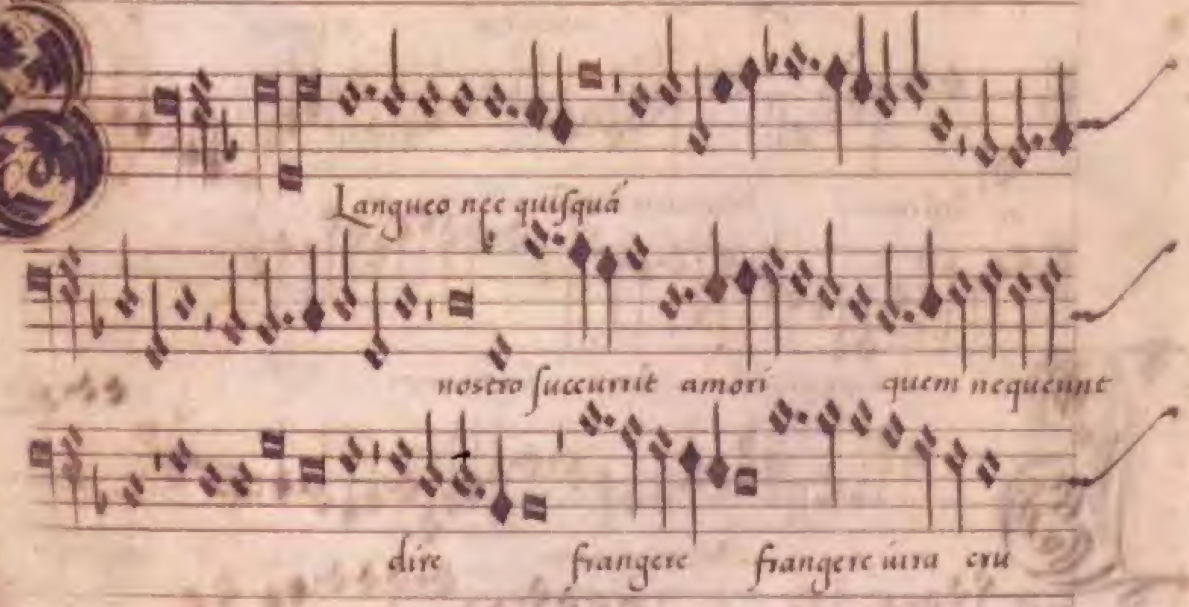 Langueo nec quisquá
nostro succurrit amori quem nequeunt
dire frangere frangere iura cru